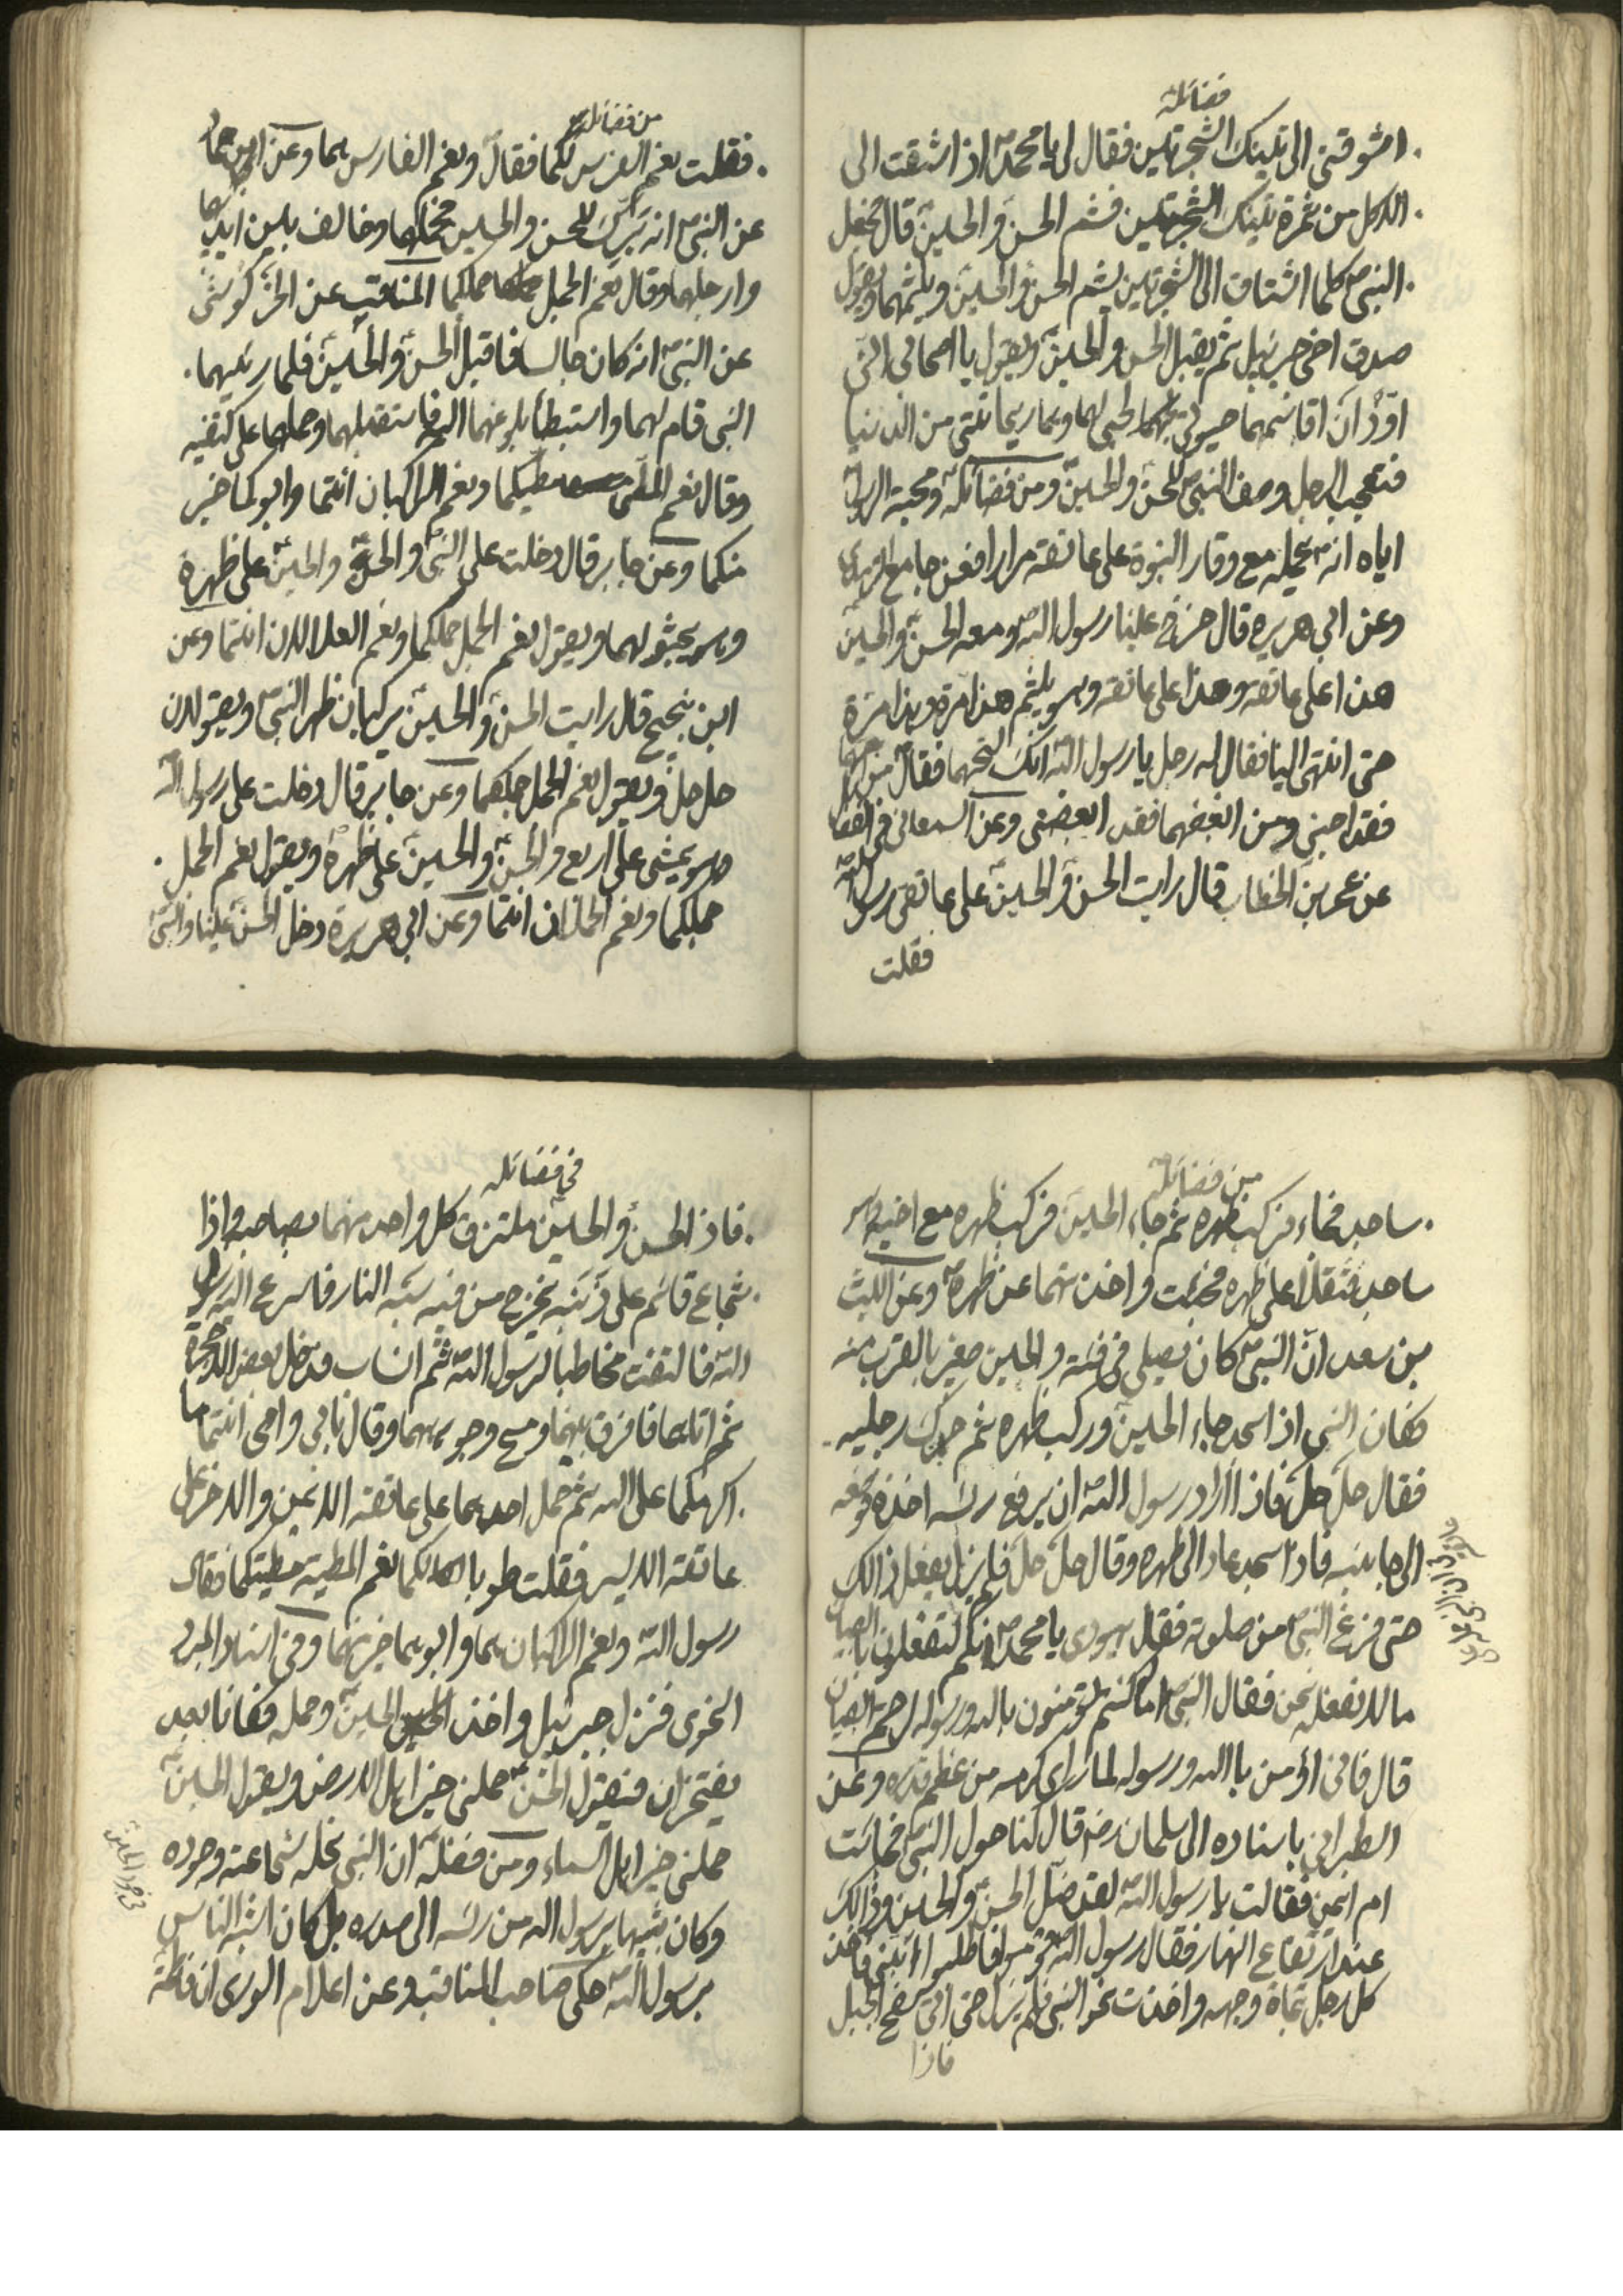 فضائله
امشوقني الى تلينك الشجرتين فقال لي يا محمد اذ اشتقت الى
الاكل من ثمرة تلينك الشجرتين فشم الحسن والحسين قال فجعل
النبي كلما اشتاق الى الشجرتين يشم الحسن والحسين ويلثمهما ويقول
صدق اخي جبرئيل ثم يقبل الحسن والحسين ويقول يا اصحابي اني
اودّ ان اقاسمهما حيوتي لحبي لهما وهما ريحانتي من الدنيا
فتعجب الرجل وصف النبي للحسن والحسين ومن فضائله ومحبة الرسول
اياه انه يحمله مع وقار النبوة على عاتقه مرارا فعن جامع الترمذي
وعن ابي هريره قال خرج علينا رسول الله ومعه الحسن والحسين
هذا على عاتقه وهذا على عاتقه وهو يلثم هذا مرة وهذا مرة
حتى انتهى الينا فقال له رجل يا رسول الله انك لتحبهما فقال من احبهما
فقد احبني ومن ابغضهما فقد ابغضني وعن السمعاني في الفضائل
عن عمر بن الخطاب قال رايت الحسن والحسين على عاتقي رسول الله
فقلت
من فضائله
فقلت نعم الفرس لكما فقال ونعم الفارس هما وعن ابن حماد
عن النبي انه برك للحسن والحسين فحملهما وخالف بين ايديهما
وارجلهما وقال نعم الجمل جملكما المناقب عن الخركوشي
عن النبي انه كان جالسا فاقبل الحسن والحسين فلما رئيهما
النبي قام لهما واستبطأ بلوغهما اليه فاستقبلهما وحملهما على كتفيه
وقال نعم المطي مطيكما ونعم الراكبان انتما وابوكما خير
منكما وعن جابر قال دخلت على النبي والحسن والحسين على ظهره
وهو يجثو لهما ويقول نعم الجمل جملكما ونعم العدلان انتما وعن
ابن نجيح قال رايت الحسن والحسين يركبان ظهر النبي ويقولان
حل حل ويقول نعم الجمل جملكما وعن جابر قال دخلت على رسول الله
وهو يمشي على اربع والحسن والحسين على ظهره ويقول نعم الجمل
جملكما ونعم الحملان انتما وعن ابي هريرة دخل الحسن علينا والنبي
من فضائله
ساجد فجاء فركب ظهره ثم جاء الحسين فركب ظهره مع اخيه وهو
ساجد فثقلا على ظهره فجئت واخذتهما عن ظهره وعن الليث
بن سعد ان النبي كان يصلي في فئة والحسين صغير بالقرب منه
فكان النبي اذا سجد جاء الحسين وركب ظهره ثم حرك رجليه
فقال حل حل فاذا اراد رسول الله ان يرفع رئسه اخذه فوضعه
الى جانبه فاذا سجد عاد الى ظهره وقال حل حل فلم يزل يفعل ذالك
حتى فرغ النبي من صلوته فقال يهودي يا محمد انكم لتفعلون بالصبيان
ما لا نفعله نحن فقال النبي اما لو كنتم تؤمنون بالله ورسوله لرحمتم الصبيان
قال فاني اؤمن بالله ورسوله لما راى كرمه من عظم قدره وعن
الطبراني باسناده الى سلمان رضه قال كنا حول النبي فجائت
ام ايمن فقالت يا رسول الله لقد ضل الحسن والحسين وذالك
عند ارتفاع النهار فقال رسول الله قوموا فاطلبوا ابني فاخذ
كل رجل تجاه وجهه واخذت نحو النبي فلم يزل حتى اتى سفح الجبل
فاذا
في فضائله
فاذ الحسن والحسين ملتزق كل واحد منهما بصاحبه واذا
شجاع قائم على ذنبه يخرج من فيه شبه النار فاسرع اليه رسول
الله فالتفت مخاطبا لرسول الله ثم انساب فدخل بعض الاحجرة
ثم اتاهما فافرق بينهما ومسح وجوههما وقال بابي وامي انتما ما
اكرمكما على الله ثم حمل احدهما على عاتقه الايمن والاخر على
عاتقه الايسر فقلت طوبا لكما نعم المطية مطيتكما فقال
رسول الله ونعم الراكبان هما وابوهما خير منهما وفي
اخرى فنزل جبرئيل واخذ الحسين وحمله فكانا بعد
يفتخران فيقول الحسن حملني خير اهل الارض ويقول الحسين
حملني خير اهل السماء ومن فضله ان النبي نحله شجاعته وجوده
وكان شبيها برسول الله من رئسه الى صدره بل كان اشبه الناس
برسول الله حكى صاحب المناقب وعن اعلام الورى ان فاطمة